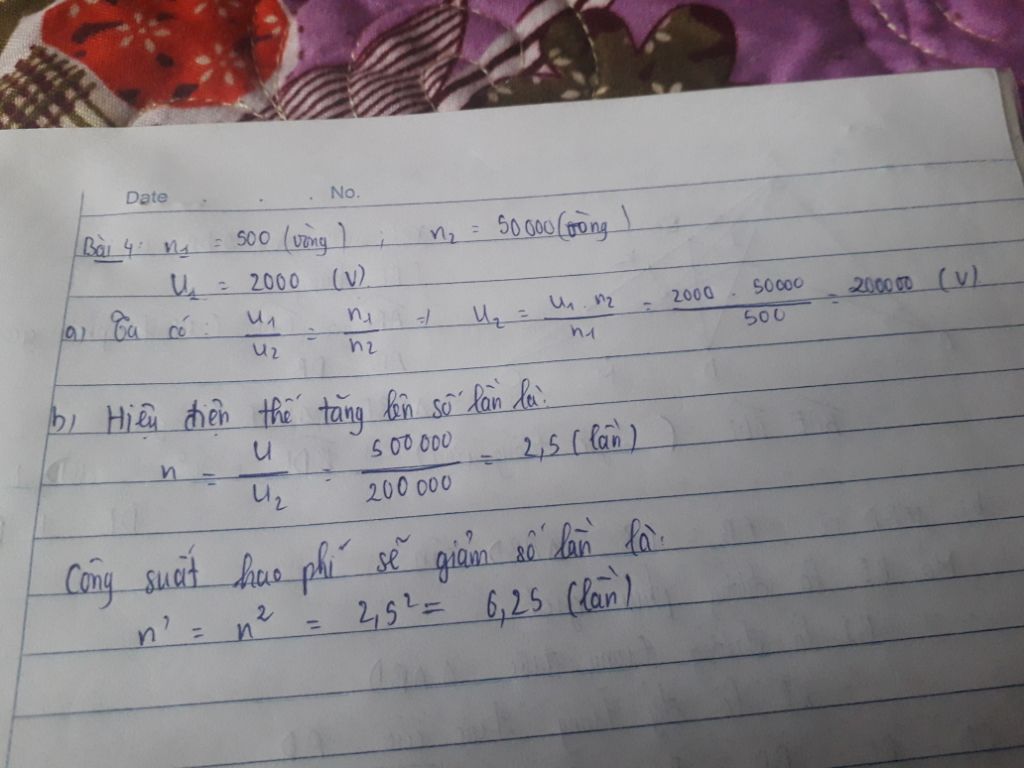 Date . . . No.
Bài 4: n₁ = 500 (vòng) ; n₂ = 50000 (vòng)
U₁ = 2000 (V)
a) Ta có: U₁/U₂ = n₁/n₂ => U₂ = U₁ . n₂/n₁ = 2000 . 50000/500 = 200000 (V)
b) Hiệu điện thế tăng lên số lần là:
n = U/U₂ = 500 000/200 000 = 2,5 (lần)
Công suất hao phí sẽ giảm số lần là:
n' = n² = 2,5² = 6,25 (lần)